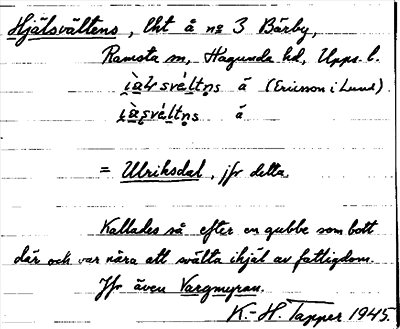 Hjälsvältens, lht å no 3 Bärby,
Ramsta sn, Hagunda hd, Upps. l.
ìàlsvéltn̥s å (Ericsson i Lund)
ìàsvéltn̥s å
= Ulriksdal, jfr detta.
Kallades så efter en gubbe som bott
där och var nära att svälta ihjäl av fattigdom.
Jfr även Vargmyran.
K.-H. Tapper 1945.